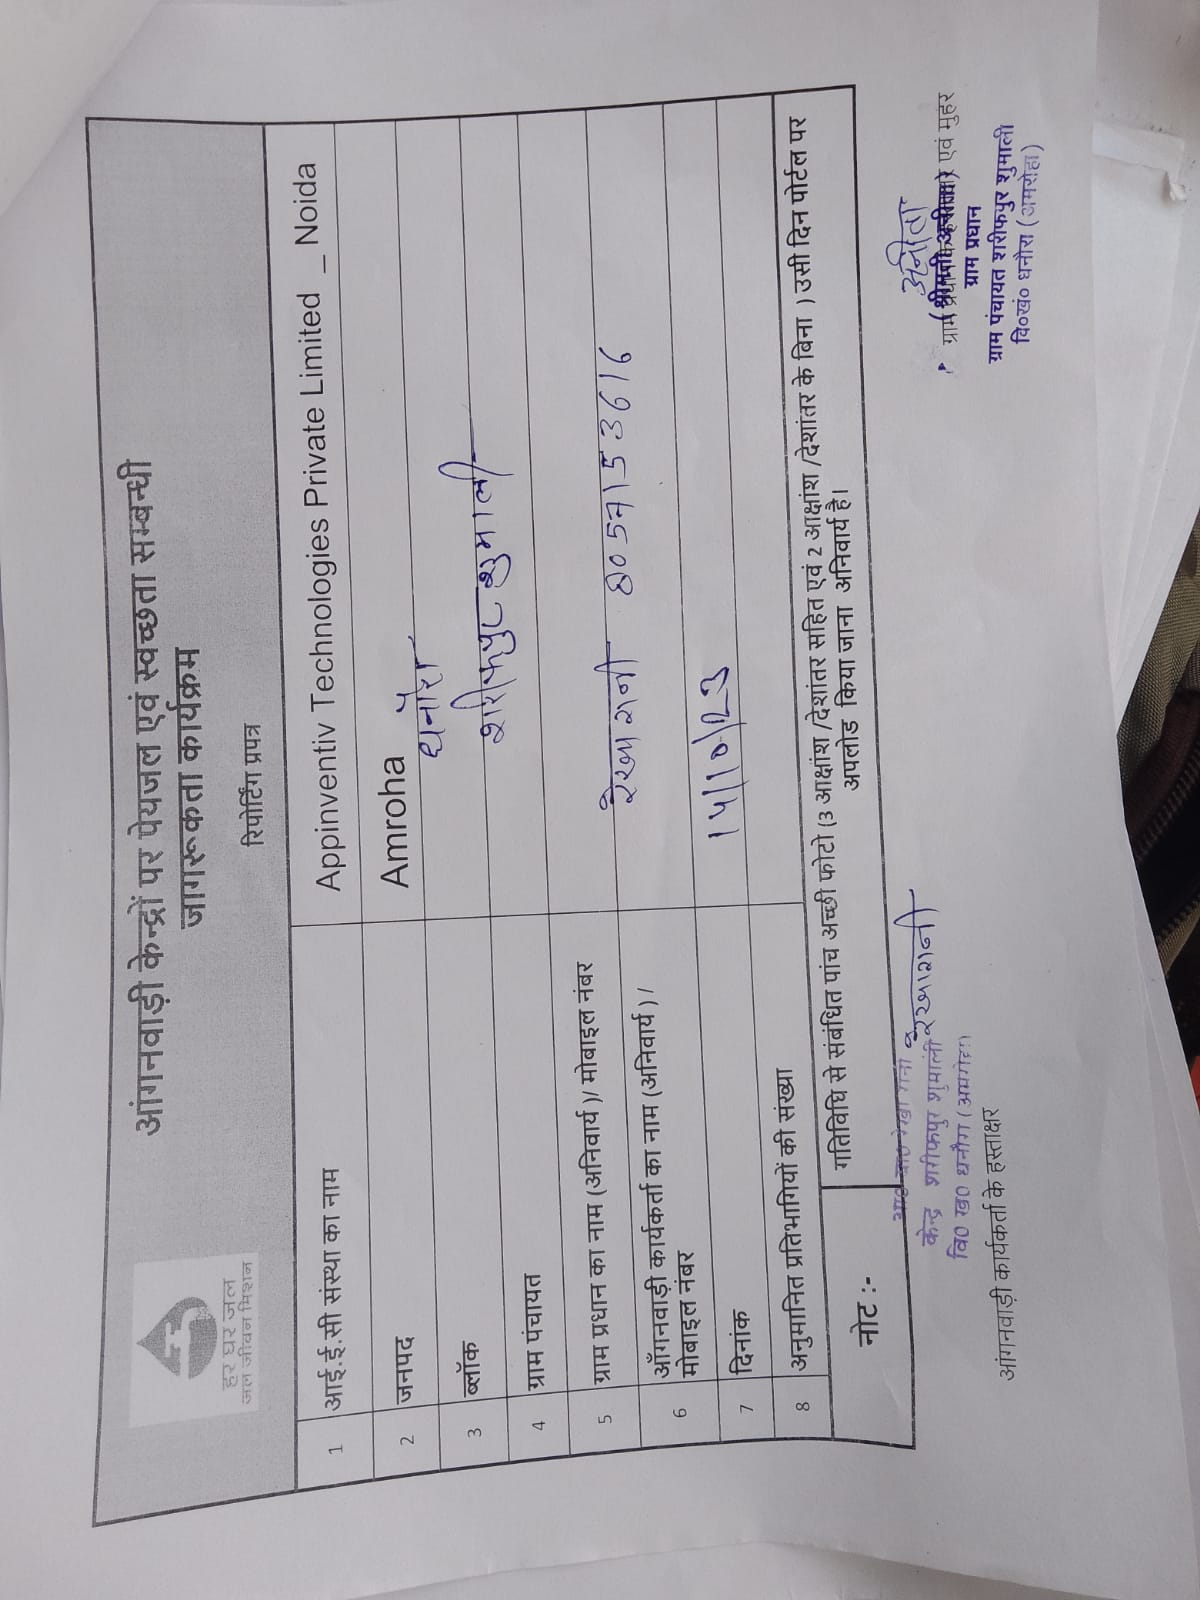 हर घर जल
जल जीवन मिशन
आंगनवाड़ी केन्द्रों पर पेयजल एवं स्वच्छता सम्बन्धी
जागरूकता कार्यक्रम
रिपोर्टिंग प्रपत्र
1 आई.ई.सी संस्था का नाम Appinventiv Technologies Private Limited _ Noida
2 जनपद Amroha
3 ब्लॉक धनौरा
4 ग्राम पंचायत शरीफपुर शुमाली
5 ग्राम प्रधान का नाम (अनिवार्य )/ मोबाइल नंबर
6 आँगनवाड़ी कार्यकर्ता का नाम (अनिवार्य ) / रेखा रानी 8057153616
मोबाइल नंबर
7 दिनांक 14/10/23
8 अनुमानित प्रतिभागियों की संख्या
नोट :- गतिविधि से संबंधित पांच अच्छी फोटो (3 आक्षांश /देशांतर सहित एवं 2 आक्षांश /देशांतर के बिना ) उसी दिन पोर्टल पर
अपलोड किया जाना अनिवार्य है।
रेखा रानी
केन्द्र शरीफपुर शुमाली
वि० ख० धनौरा (अमरोहा)
आंगनवाड़ी कार्यकर्ता के हस्ताक्षर
अनीता
ग्राम एवं मुहर
(श्रीमती अनीता)
ग्राम प्रधान
ग्राम पंचायत शरीफपुर शुमाली
वि०खं० धनौरा (अमरोहा)